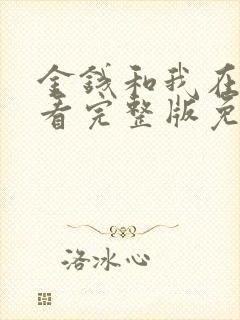 金钱和我在
看完整版免
洛冰心